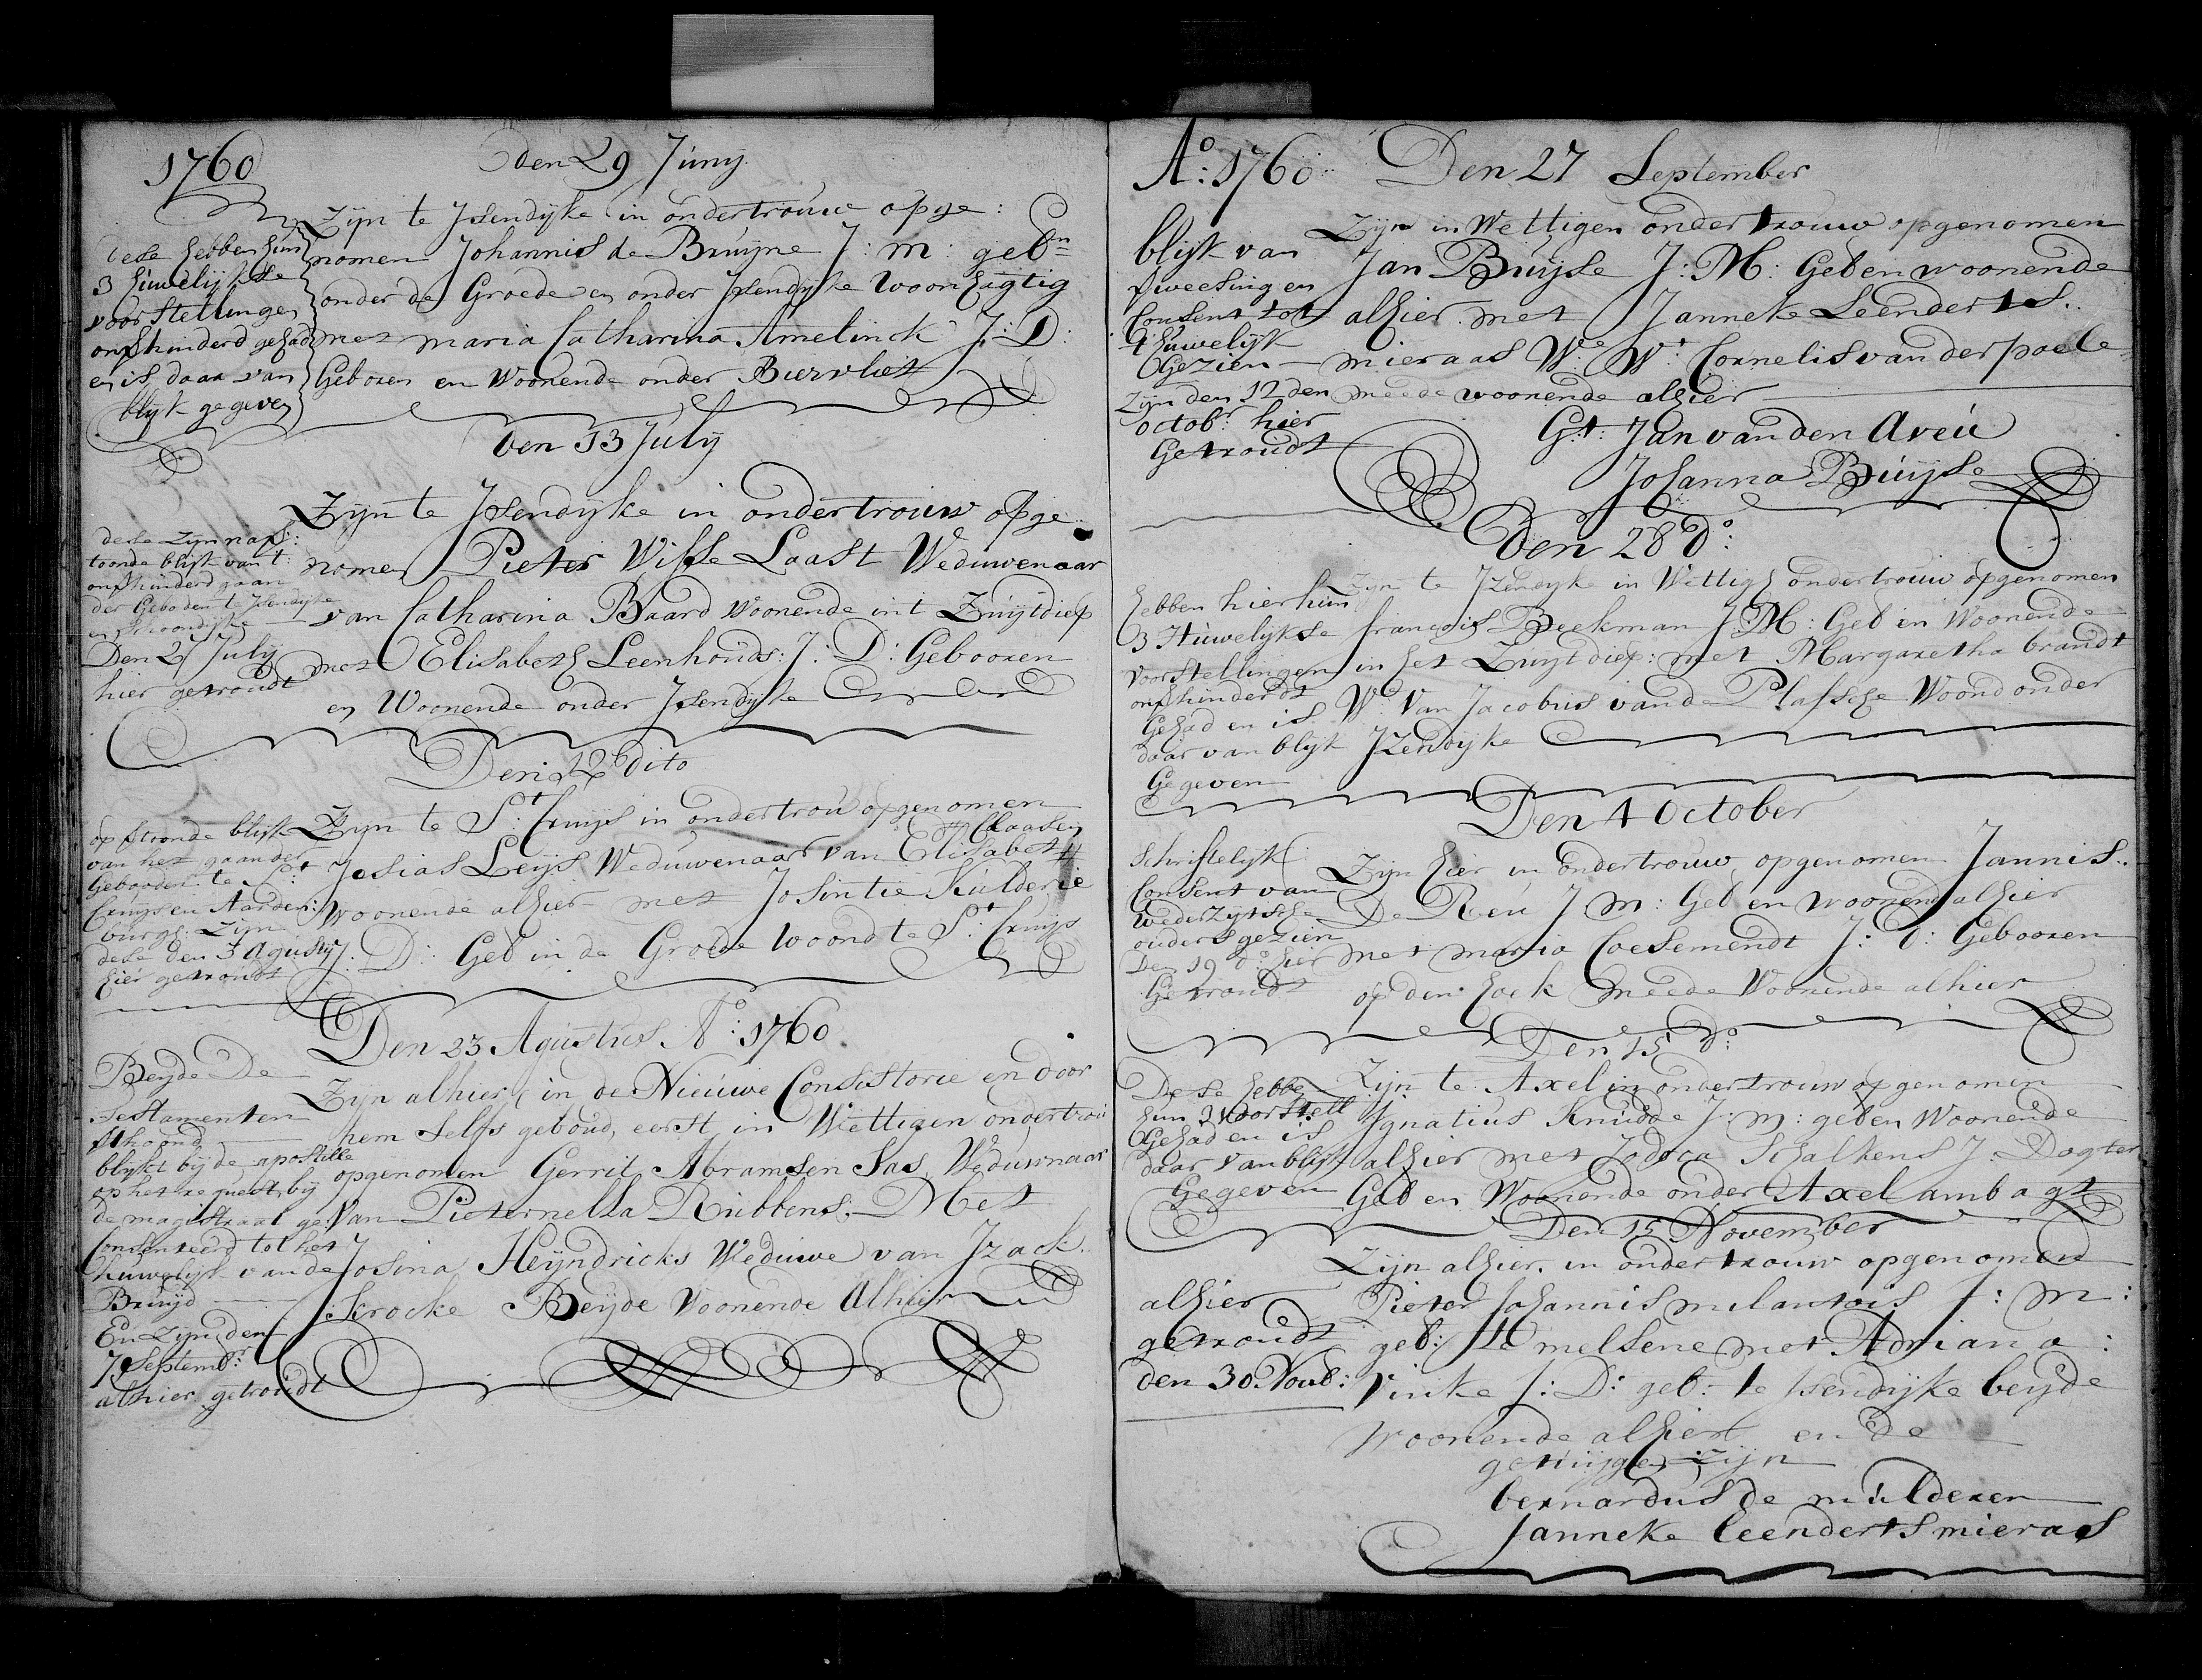 1760
den 29 Junij
Zijn te Jsendijke in ondertrouwe opge:
nomen Johannis de Bruijne J: m: gebn
onder de Groede en onder Jsendijke Woonhagtig
met maria Catharina Amelinck J: D:
Geboren en Woonende onder Biervliet
dese hebben hun
3 huwelijkse
voorstellinge
onverhinderd gehad
en is daar van
blijk gegeven
den 13 Julij
Zijn te Jsendijke in ondertrouw opge
nomen Pieter Wisse Laast Weduwenaar
van Catharina Baard Woonende int Zuijtdiep
met Elisabeth Leenhouds: J: D: Gebooren
en Woonende onder Jsendijke
dese zijn na ver:
toonde blijk van t:
onverhinderd gaan
der Geboden te Jsendijke
en Schoondijke
Den 27 Julij
hier getroudt
Den 12 dito
Zijn te St: Cruijs in ondertrou opgenomen
Josias Leijs Weduwenaar van Elisabeth
Claasen
woonende alhier met Josintie Kulderie
J: D: Geb in de Groede Woond te St: Cruijs
op vertoonde blijk
van het gaan der
Gebooden te St:
Cruijs en Aarden:
burgh: zijn
dese den 3 Agusty
hier getroudt
Den 23 Agustus Ao: 1760
Zijn alhier in de Nieuwe Consistorie en door
hem selfs geboud, eerst in Wettigen ondertrou
opgenomen Gerrit Abramsen Sas Weduwnaar
van Pieternella Rubbens. Met
Josina Heijndricks Weduwe van Jzack
Skrocke Beijde Woonende Alhier
Beijde De
Testamenten
verthoond
blijkt bij de apostille
op het request, bij
de magistraat ge
Consenteerd tot het
huwelijk van de
Bruijd
En Zijn den
7 Septembr:
alhier getroudt
Ao: 1760 Den 27 September
Zijn in Wettigen ondertrouw opgenomen
Jan Buijse J: M: Geb en woonende
alhier met Janneke Leenderts
mieraas We: Wt: Cornelis van der poele
meede woonende alhier
Gt: Jan van den Aveú
Johanna Buijse
blijk van
verweesing en
Consent tot
t huwelijk
Gezien
Zijn den 12 den
octobr: hier
Getroudt
Den 28 do:
Zijn te Jzendijke in Wettigh ondertrouw opgenomen
francois Beekman J: M: Geb en Woonende
in het Zuijtdiep: met Margaretha brandt
We Van Jacobus van de Plassche Woond onder
Jzendijke
hebben hier hun
3 Huwelijkse
voorstellingen
onverhinderdt
Gehad en is
daar van blijk
Gegeven
Den 4 October
Zijn hier in ondertrouw opgenomen Jannis
De Reu J m: Geb en woonend alhier
met maria Coesemendt J: D: Gebooren
op den hoek meede Woonende alhier
Schriftelijk
Consent van
wederzijtsche
ouders gezien
Den 19 do: hier
Getroudt
Den 15 do:
Zijn te Axel in ondertrouw opgenomen
Jgnatius Knudde J: m: geb en Woonende
alhier met Jodoca Schalkens J: Dogter
Geb en Woonende onder Axel ambagt
Dese hebbe
hun 3 voorstell
Gehad en is
daar van blijk
Gegeven
Den 15 November
Zijn alhier in ondertrouw opgenomen
Pieter Johannis milantois J: m:
geb: te melsene met Adriana:
Vinke J: D: geb: te Jsendijke beijde
Woonende alhier en de
getuijgen zijn
bernardus de mulderer
Janneke leenderts mieras
alhier
getroudt
den 30 Novb: